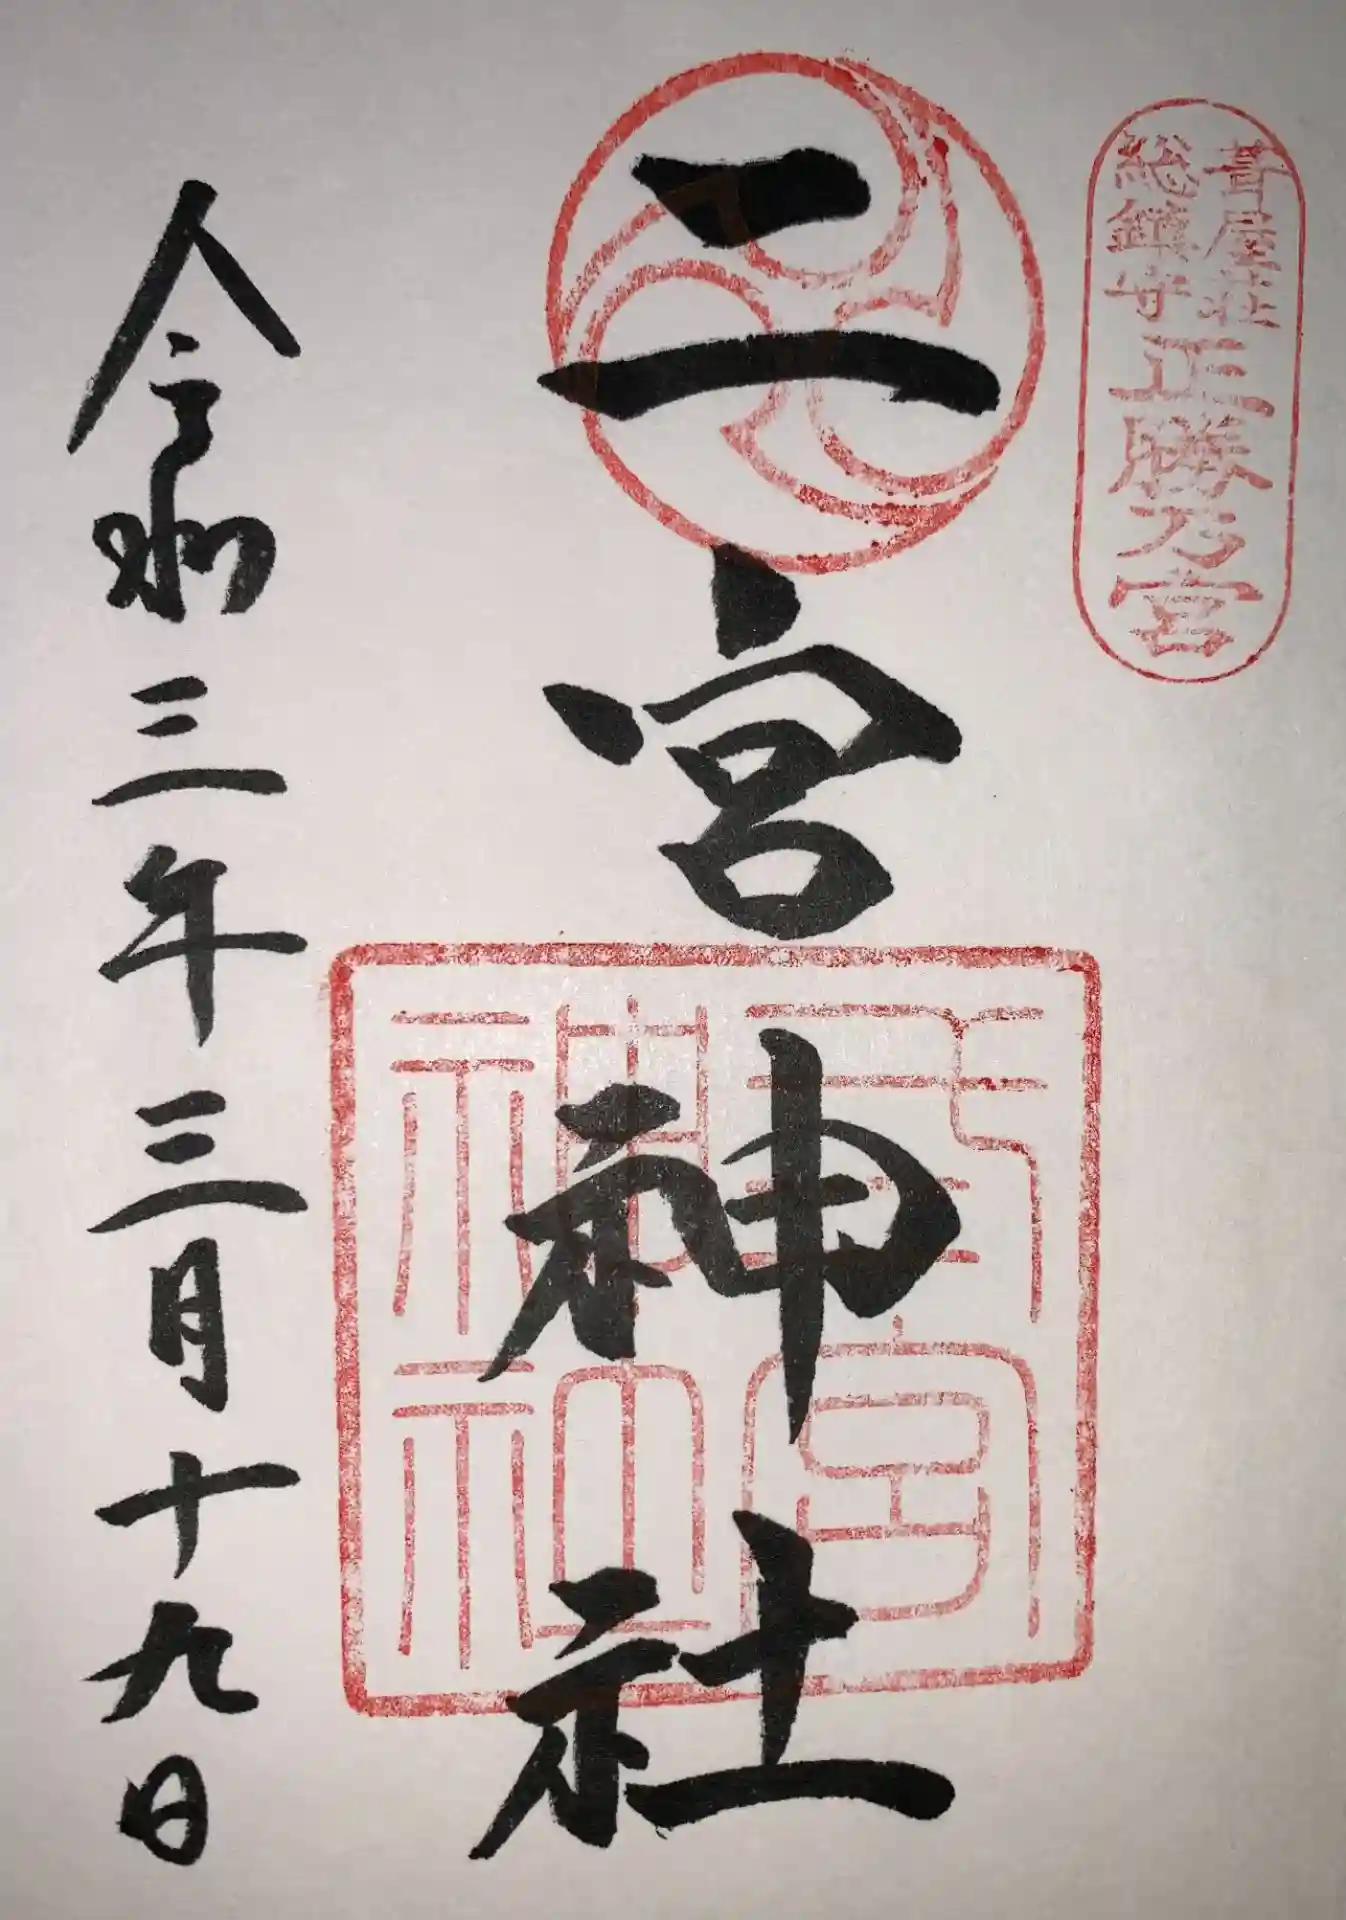 葺屋荘
総鎮守
正勝乃宮
二宮神社
弍宮
神社
令和三年三月十九日